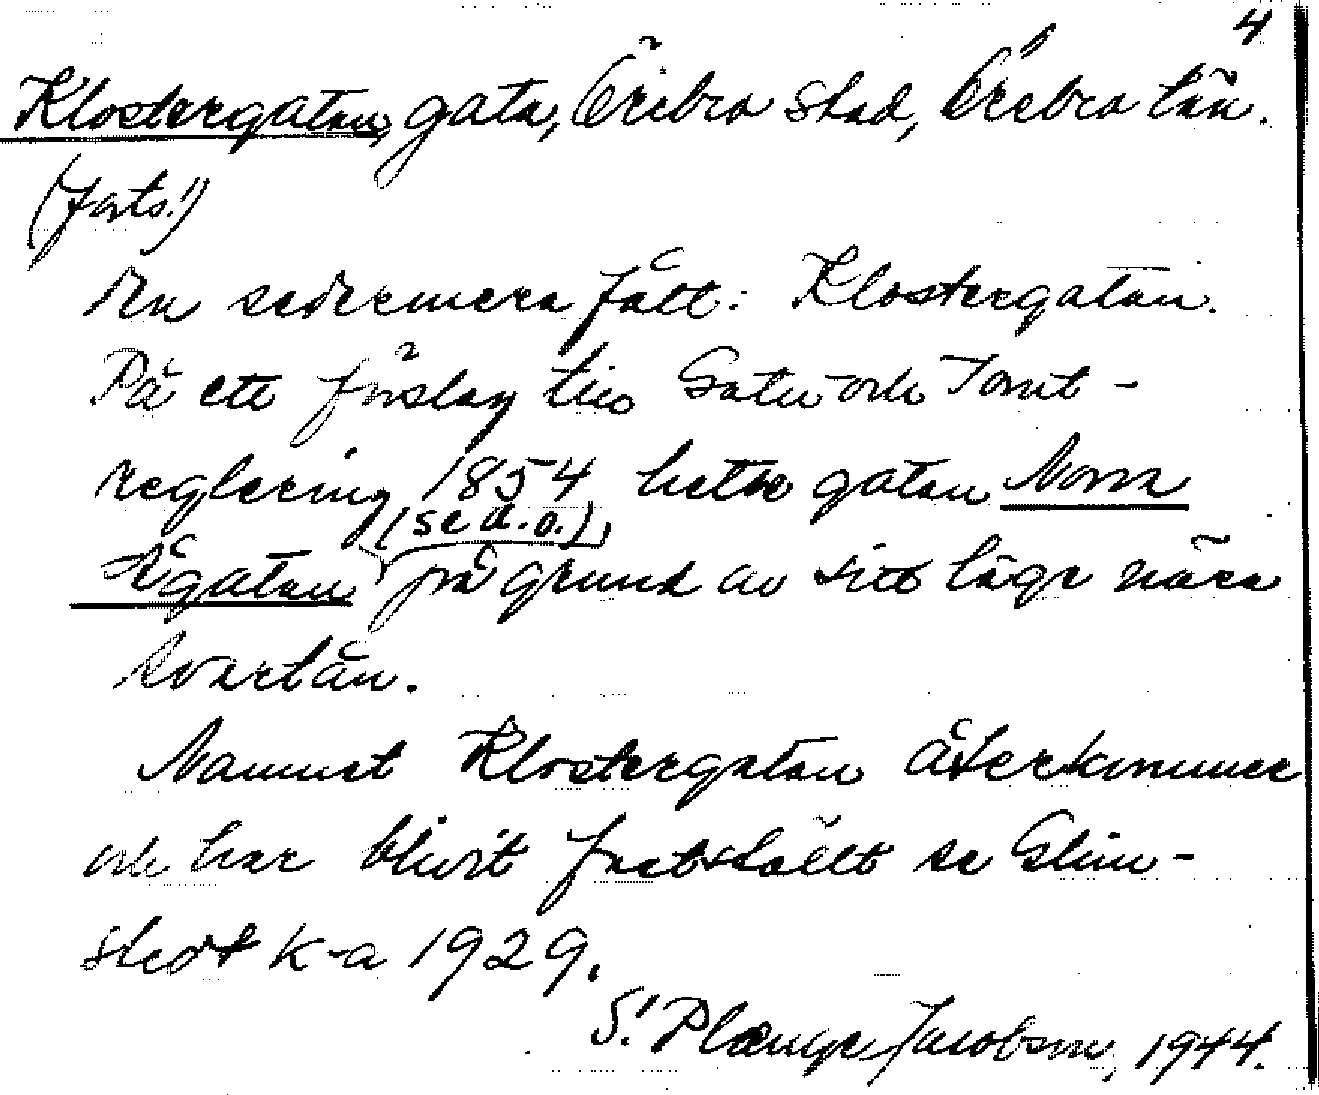 4
Klostergatan, gata, Örebro stad, Örebro län.
(forts.)
den sedermera fått: Klostergatan.
På ett förslag till Gatu och Tomt-
reglering 1854 hette gatan Norra
(se d.o.)
Ågatan på grund av sitt läge nära
Svartån.
Namnet Klostergatan återkommer
och har blivit fastställt se Glim-
stedt K-a 1929.
S. Plænge Jacobson, 1944.